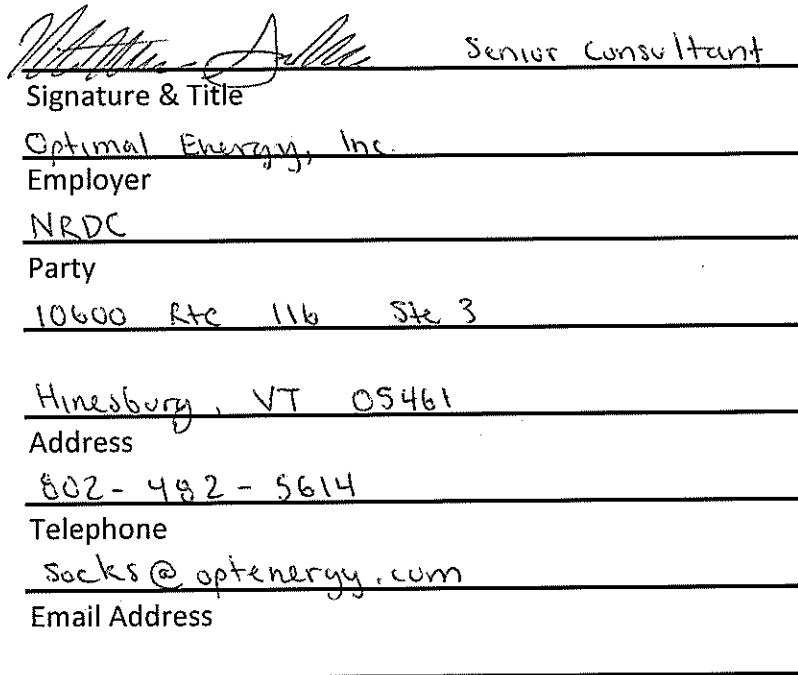 Senior Consultant
Signature & Title
Optimal Energy, Inc.
Employer
NRDC
Party
10600 Rte 116 Ste 3
Hinesburg, VT 05461
Address
802-482-5614
Telephone
socks@optenergy.com
Email Address